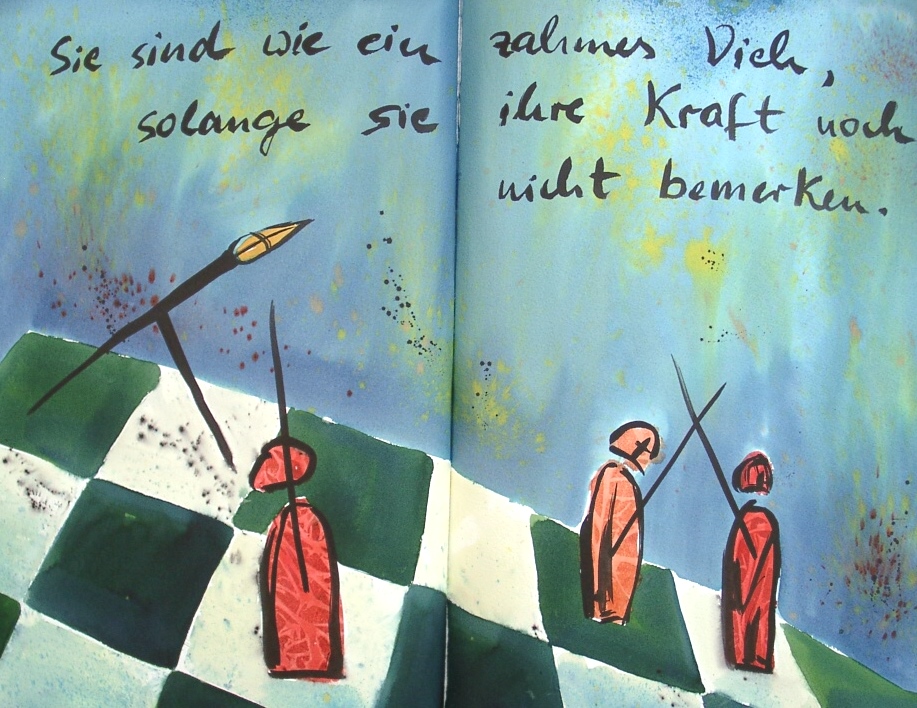 Sie sind wie ein zahmes Vieh,
solange sie ihre Kraft noch
nicht bemerken.